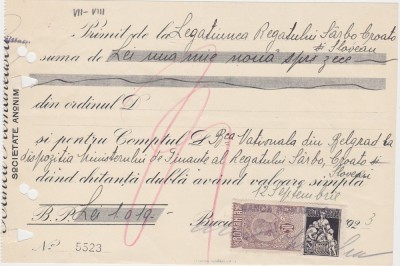 VII-VIII
Primit de la Legatiunea Regatului Sârbo-Croato
si Sloveau
suma de Lei una mie nouă spre zece
din ordinul D
și pentru Comptul D Bca Nationala din Belgrad la
dispozitia Ministerului de Finante al Regatului Sârbo, Croato si
Sloveau
dând chitanță dublă având valoare simplă
12 Septembrie
B. P. Lei 1019.-
Bucu 1923
No 5523
SOCIETATE ANONIM